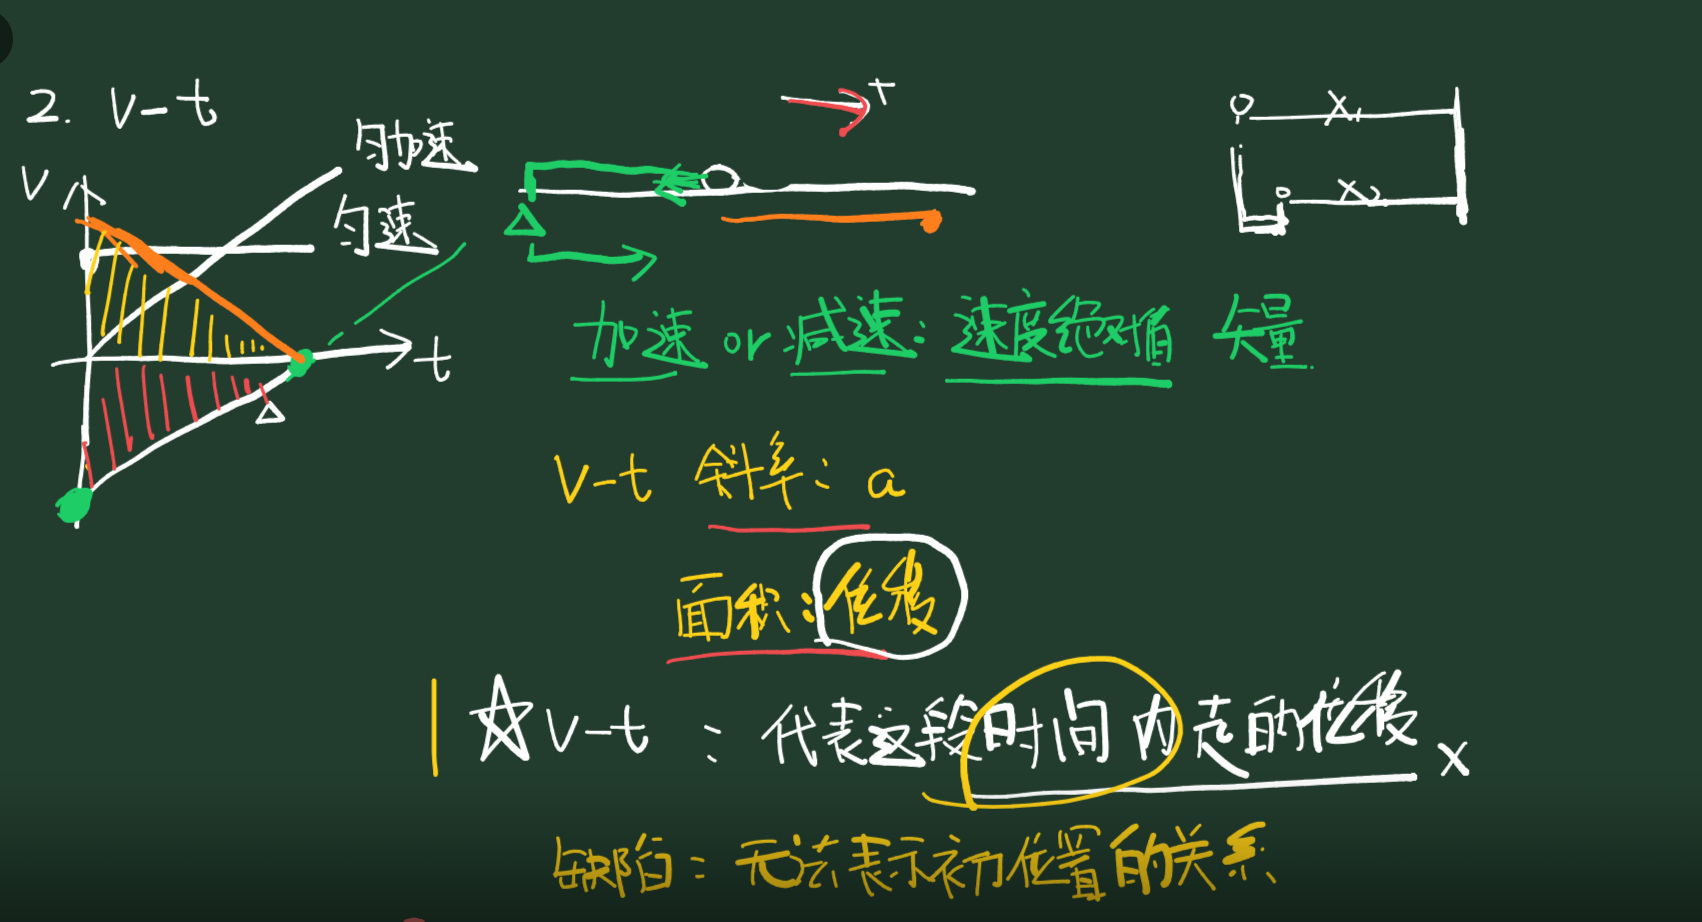 2. v-t
v
匀加速
匀速
t
△
+
△
0 x₁
0 x₂
加速 or 减速: 速度绝对值 矢量
v-t 斜率: a
面积: 位移
☆ v-t : 代表这段时间内走的位移 x
缺陷: 无法表示初位置的关系